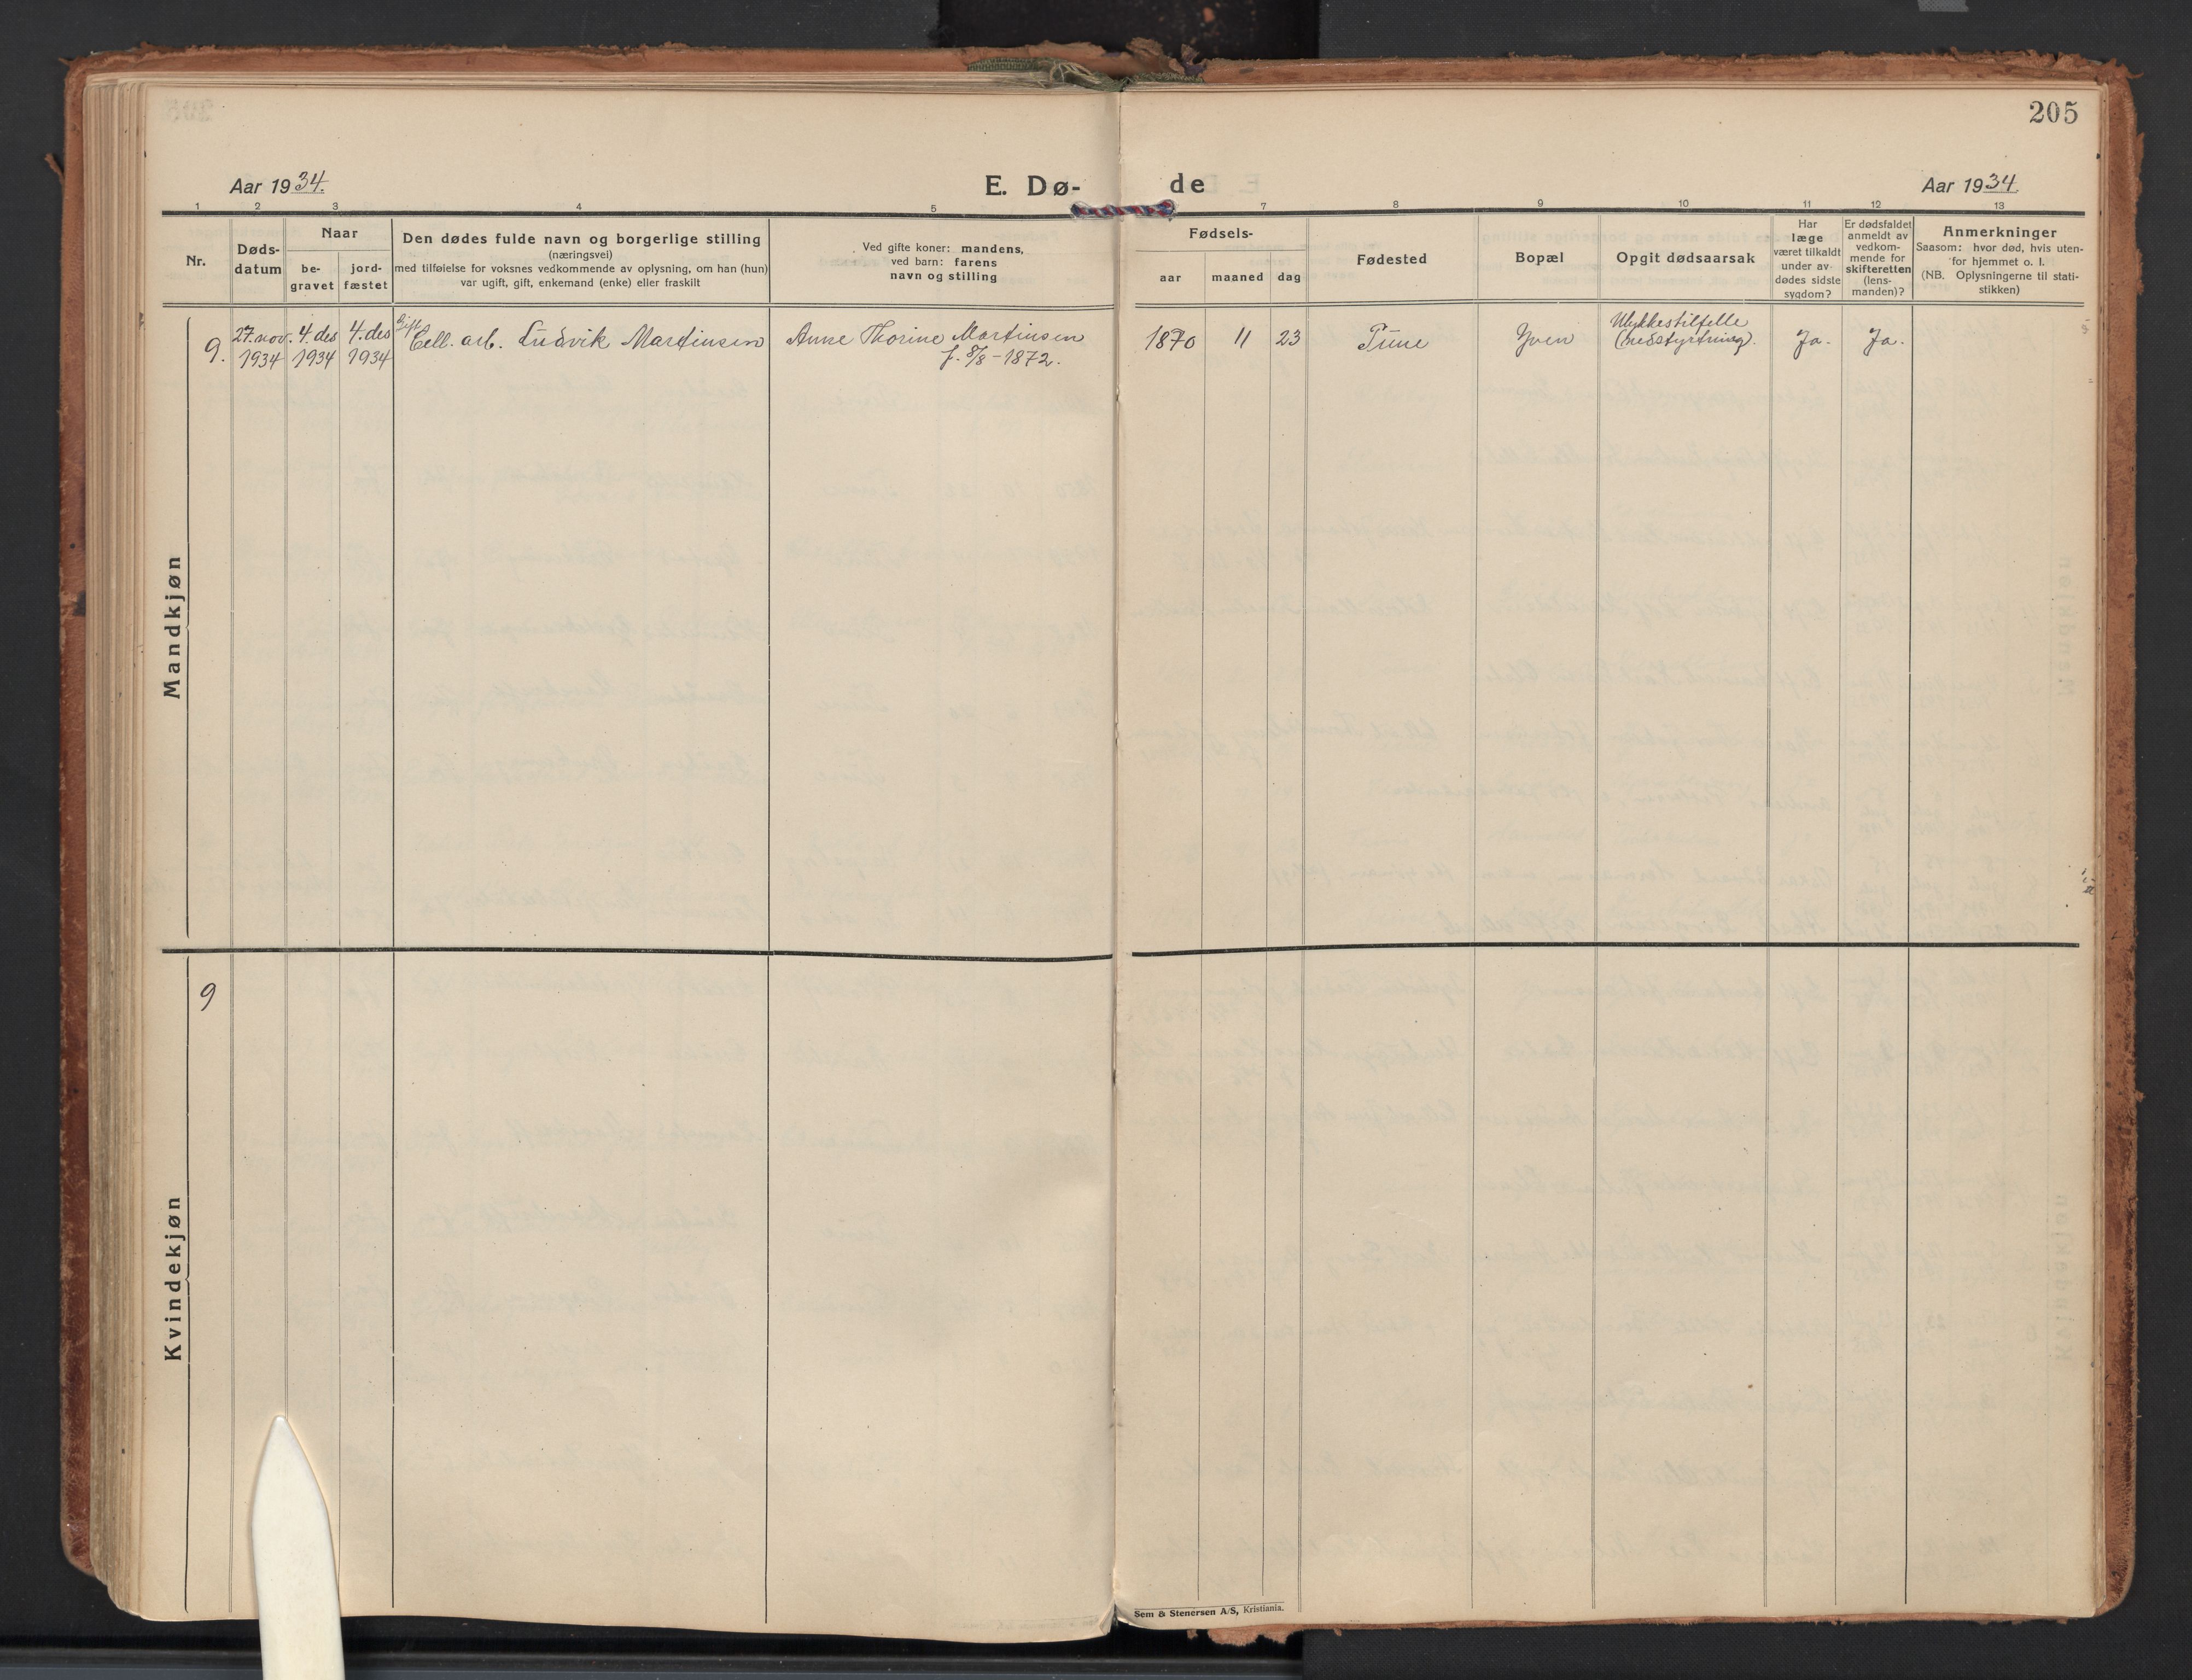 205
Aar 1934.
E. Dø-
de
Aar 1934.
1 2 3 4 5 7 8 9 10 11 12 13
Nr.
Døds-
datum
Naar
be-
gravet
jord-
fæstet
Den dødes fulde navn og borgerlige stilling
(næringsvei)
med tilføielse for voksnes vedkommende av oplysning, om han (hun)
var ugift, gift, enkemand (enke) eller fraskilt
Ved gifte koner: mandens,
ved barn: farens
navn og stilling
Fødsels-
aar maaned dag
Fødested
Bopæl
Opgit dødsaarsak
Har
læge
været tilkaldt
under av-
dødes sidste
sygdom?
Er dødsfaldet
anmeldt av
vedkom-
mende for
skifteretten
(lens-
manden)?
Anmerkninger
Saasom: hvor død, hvis uten-
for hjemmet o. l.
(NB. Oplysningerne til stati-
stikken)
Mandkjøn
9.
27. nov.
1934
4. des
1934
4. des
1934
Gift
Cell. arb. Ludvik Martinsen
Anne Thorine Martinsen
f. 8/8 - 1872.
1870 11 23
Tune
Yven
Ulykkestilfelle
(nedstyrtning).
Ja.
Ja.
Kvindekjøn
9
Sem & Stenersen A/S, Kristiania.